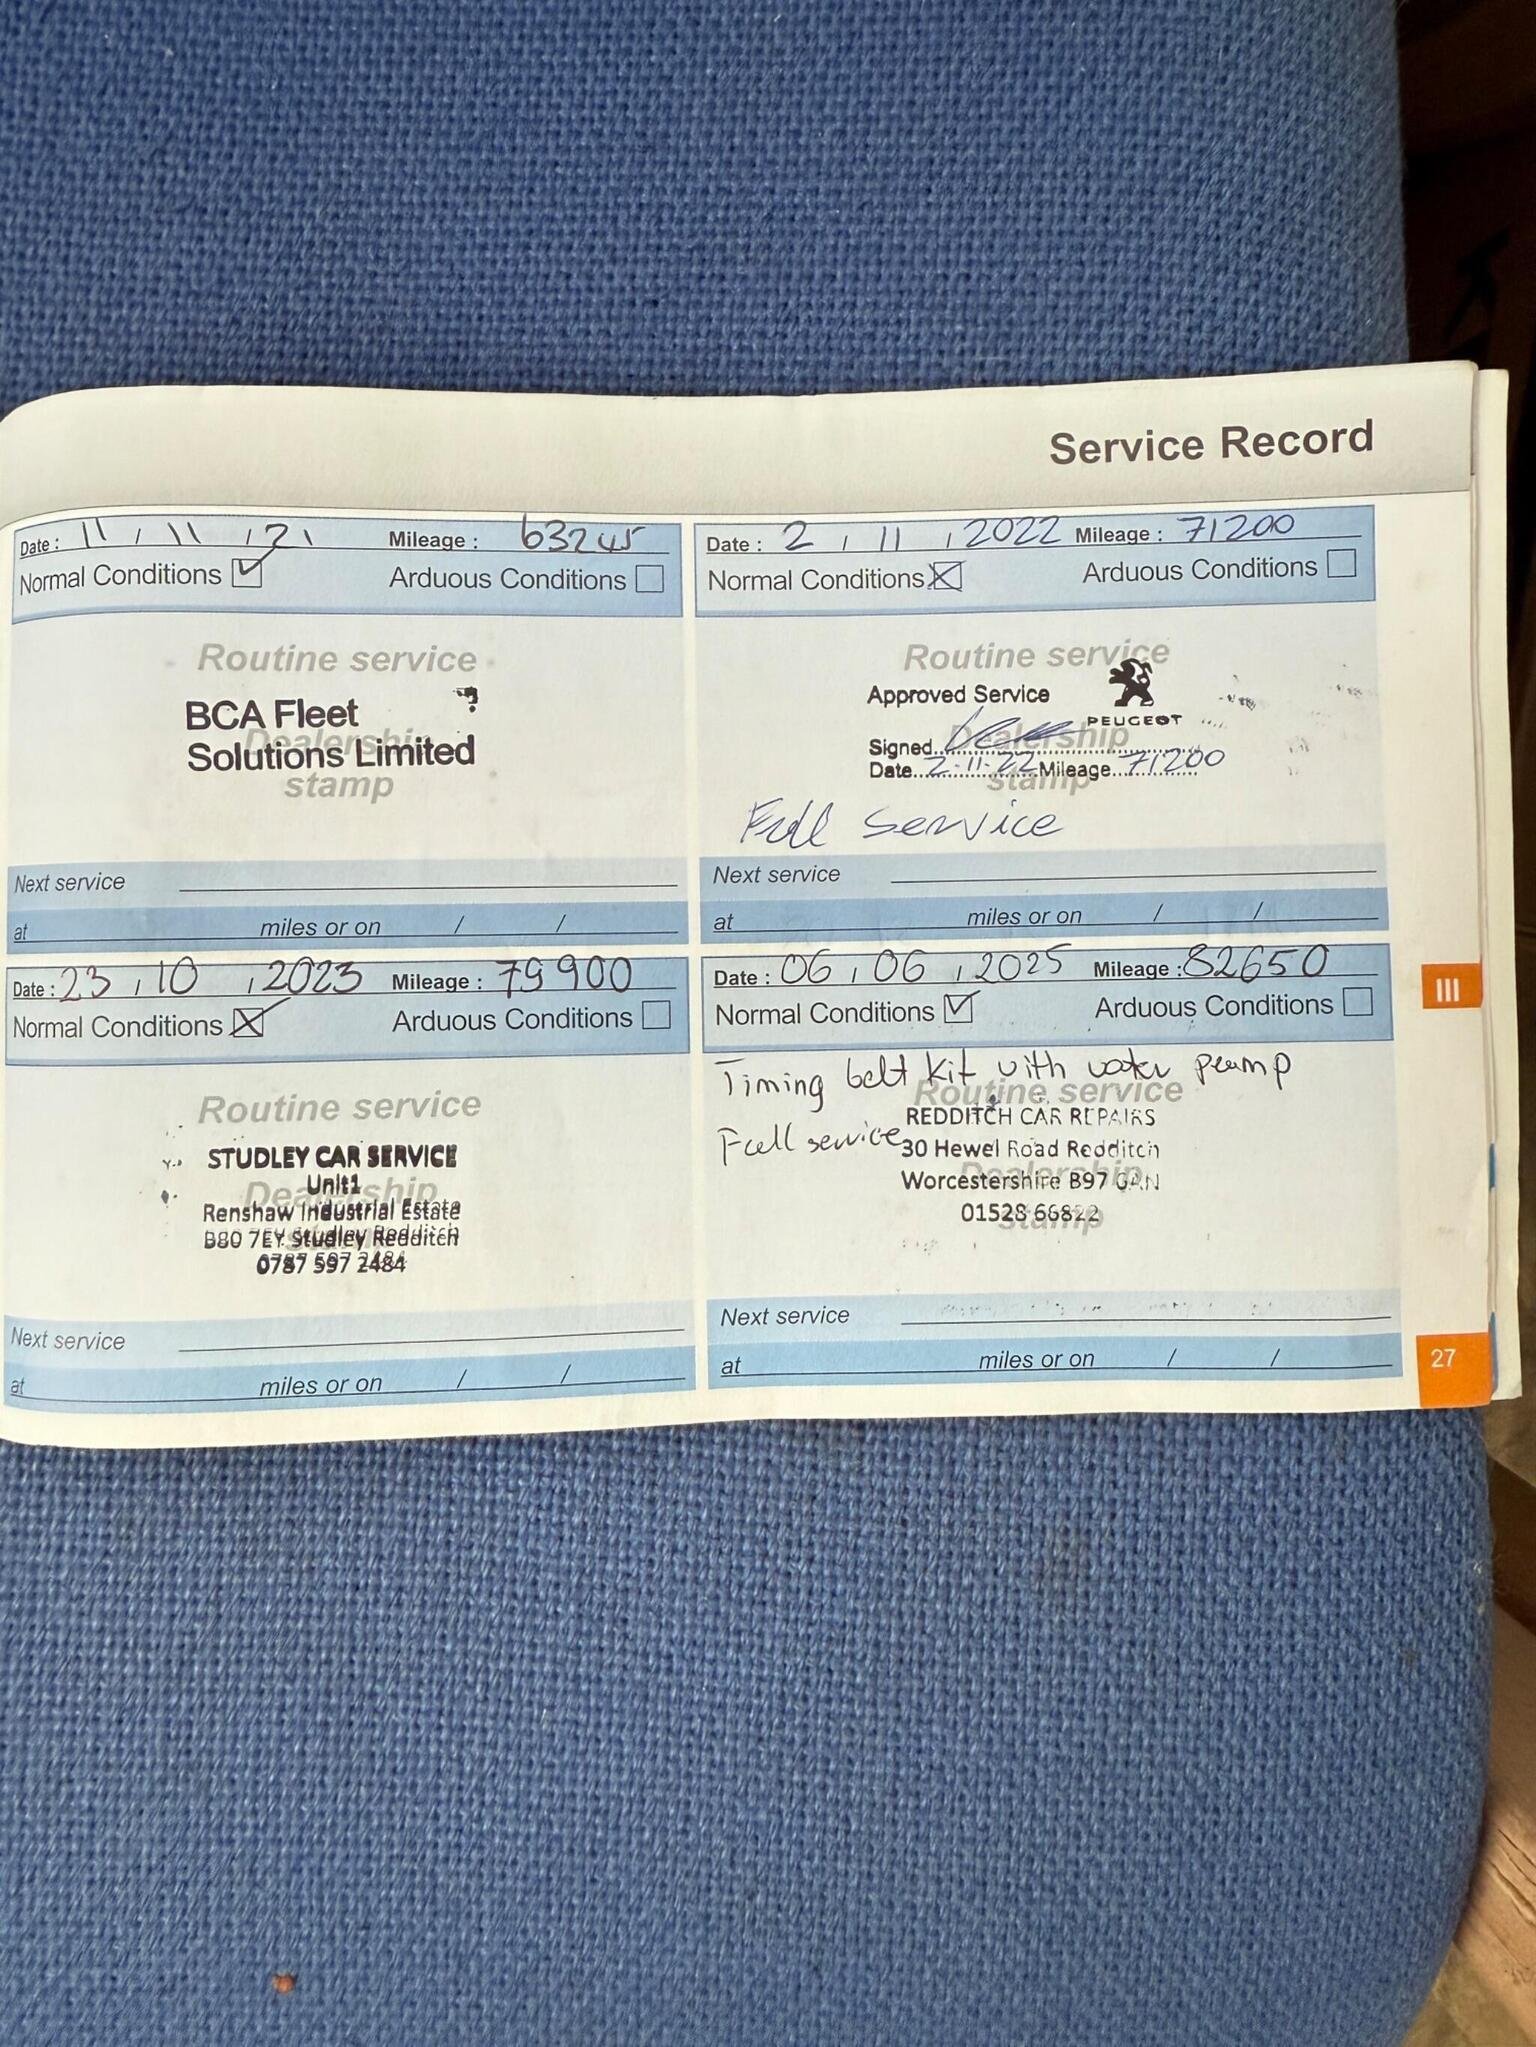 Service Record
Date : 11 / 11 / 21 Mileage : 63245
Normal Conditions Arduous Conditions
Routine service
BCA Fleet
Dealership
Solutions Limited
stamp
Next service
at miles or on / /
Date : 2 / 11 / 2022 Mileage : 71200
Normal Conditions Arduous Conditions
Routine service
Approved Service
PEUGEOT
Dealership
Signed
Date 2-11-22 Mileage 71200
stamp
Full Service
Next service
at miles or on / /
Date : 23 / 10 / 2023 Mileage : 79900
Normal Conditions Arduous Conditions
Routine service
STUDLEY CAR SERVICE
Unit1
Dealership
Renshaw Industrial Estate
B80 7EY Studley Redditch
stamp
0787 597 2484
Next service
at miles or on / /
Date : 06 / 06 / 2025 Mileage : 82650
Normal Conditions Arduous Conditions
Timing belt kit with water pump
Routine service
REDDITCH CAR REPAIRS
Full service
30 Hewel Road Redditch
Dealership
Worcestershire B97 6AN
01528 66822
stamp
Next service
at miles or on / /
III
27